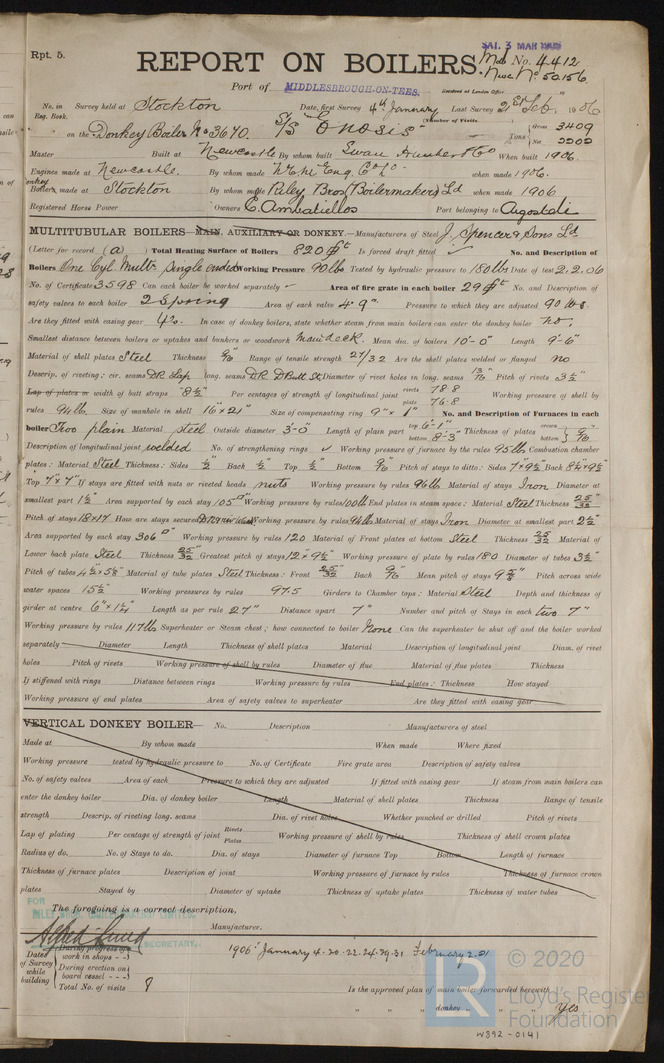 Rpt. 5.
SAT. 3 MAR 1906
REPORT ON BOILERS.
Mdb No. 4412
Nwc No 50156
Port of MIDDLESBROUGH-ON-TEES.
Received at London Office
No. in Survey held at Stockton Date, first Survey 4th January Last Survey 21st Feb. 1906
Reg. Book. (Number of Visits
on the Donkey Boiler No 3670. S/S "Enosis" Tons { Gross 3409
Net 2202
Master Built at Newcastle By whom built Swan Hunter & Co When built 1906.
Engines made at Newcastle. By whom made N.E. M. Eng. Co Ld when made 1906.
donkey
Boilers made at Stockton By whom made Riley Bros (Boilermakers) Ld when made 1906
Registered Horse Power Owners C. Ambatiellos Port belonging to Argostoli
MULTITUBULAR BOILERS—MAIN, AUXILIARY OR DONKEY.—Manufacturers of Steel J. Spencer & Sons Ld
(Letter for record (a)) Total Heating Surface of Boilers 820 ft Is forced draft fitted ✓ No. and Description of
Boilers One Cyl. Mult. single ended Working Pressure 90 lbs Tested by hydraulic pressure to 180 lbs Date of test 2.2.06
No. of Certificate 3598 Can each boiler be worked separately — Area of fire grate in each boiler 29 ft No. and Description of
safety valves to each boiler 2 Spring Area of each valve 4.9" Pressure to which they are adjusted 90 lbs.
Are they fitted with easing gear Yes. In case of donkey boilers, state whether steam from main boilers can enter the donkey boiler no,
Smallest distance between boilers or uptakes and bunkers or woodwork main deck. Mean dia. of boilers 10'-0" Length 9'-6"
Material of shell plates Steel Thickness 9/16 Range of tensile strength 27/32 Are the shell plates welded or flanged No
Descrip. of riveting: cir. seams DR Lap long. seams DR D Butt St. Diameter of rivet holes in long. seams 13/16 Pitch of rivets 3½"
Lap of plates or width of butt straps 8½" Per centages of strength of longitudinal joint rivets 78.8 Working pressure of shell by
plate 76.8
rules 94 lb. Size of manhole in shell 16" × 21" Size of compensating ring 9" × 1" No. and Description of Furnaces in each
boiler Two plain Material Steel Outside diameter 3'-0" Length of plain part top 6'-1" Thickness of plates crown 9/16
bottom 8'-3" bottom
Description of longitudinal joint welded No. of strengthening rings ✓ Working pressure of furnace by the rules 95 lb. Combustion chamber
plates: Material Steel Thickness: Sides ½" Back ½" Top ½" Bottom 9/16" Pitch of stays to ditto: Sides 7" × 9½" Back 8½" × 9½"
Top 7" × 7" If stays are fitted with nuts or riveted heads nuts Working pressure by rules 96 lb Material of stays Iron Diameter at
smallest part 1½" Area supported by each stay 105" Working pressure by rules 100 lb End plates in steam space: Material Steel Thickness 25/32"
Pitch of stays 18 × 17 How are stays secured Working pressure by rules 94 lb Material of stays Iron Diameter at smallest part 2½"
Area supported by each stay 306" Working pressure by rules 120 Material of Front plates at bottom Steel Thickness 25/32 Material of
Lower back plate Steel Thickness 25/32 Greatest pitch of stays 12" × 9½" Working pressure of plate by rules 180 Diameter of tubes 3½"
Pitch of tubes 4½" × 5⅛" Material of tube plates Steel Thickness: Front 25/32" Back 9/16" Mean pitch of stays 9⅝" Pitch across wide
water spaces 15½" Working pressures by rules 97.5 Girders to Chamber tops: Material Steel Depth and thickness of
girder at centre 6" × 1¼" Length as per rule 27" Distance apart 7" Number and pitch of Stays in each two 7"
Working pressure by rules 117 lb Superheater or Steam chest; how connected to boiler None Can the superheater be shut off and the boiler worked
separately Diameter Length Thickness of shell plates Material Description of longitudinal joint Diam. of rivet
holes Pitch of rivets Working pressure of shell by rules Diameter of flue Material of flue plates Thickness
If stiffened with rings Distance between rings Working pressure by rules End plates: Thickness How stayed
Working pressure of end plates Area of safety valves to superheater Are they fitted with easing gear
VERTICAL DONKEY BOILER— No. Description Manufacturers of steel
Made at By whom made When made Where fixed
Working pressure tested by hydraulic pressure to No. of Certificate Fire grate area Description of safety valves
No. of safety valves Area of each Pressure to which they are adjusted If fitted with easing gear If steam from main boilers can
enter the donkey boiler Dia. of donkey boiler Length Material of shell plates Thickness Range of tensile
strength Descrip. of riveting long. seams Dia. of rivet holes Whether punched or drilled Pitch of rivets
Lap of plating Per centage of strength of joint Rivets Working pressure of shell by rules Thickness of shell crown plates
Plates
Radius of do. No. of Stays to do. Dia. of stays Diameter of furnace Top Bottom Length of furnace
Thickness of furnace plates Description of joint Working pressure of furnace by rules Thickness of furnace crown
plates Stayed by Diameter of uptake Thickness of uptake plates Thickness of water tubes
FOR
The foregoing is a correct description,
RILEY BROS. (BOILERMAKERS) LIMITED.
Manufacturer.
Alfred Lund
SECRETARY.
Dates of Survey while building { During progress of work in shops - - } 1906 January 4. 20. 22. 24. 29. 31 February 2. 21
During erection on board vessel - - -
Total No. of visits 8
Is the approved plan of main boiler forwarded herewith
" " " donkey " " " Yes
© 2020
Lloyd's Register
Foundation
W392-0141